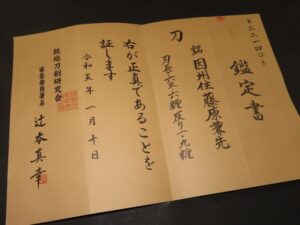 鑑定書
刀 銘 因州住藤原兼先
刀長六六、六糎 反り一、九糎
右が正真であることを
証します
令和五年一月十日
銃砲刀剣研究会
審査委員署名
辻本真幸